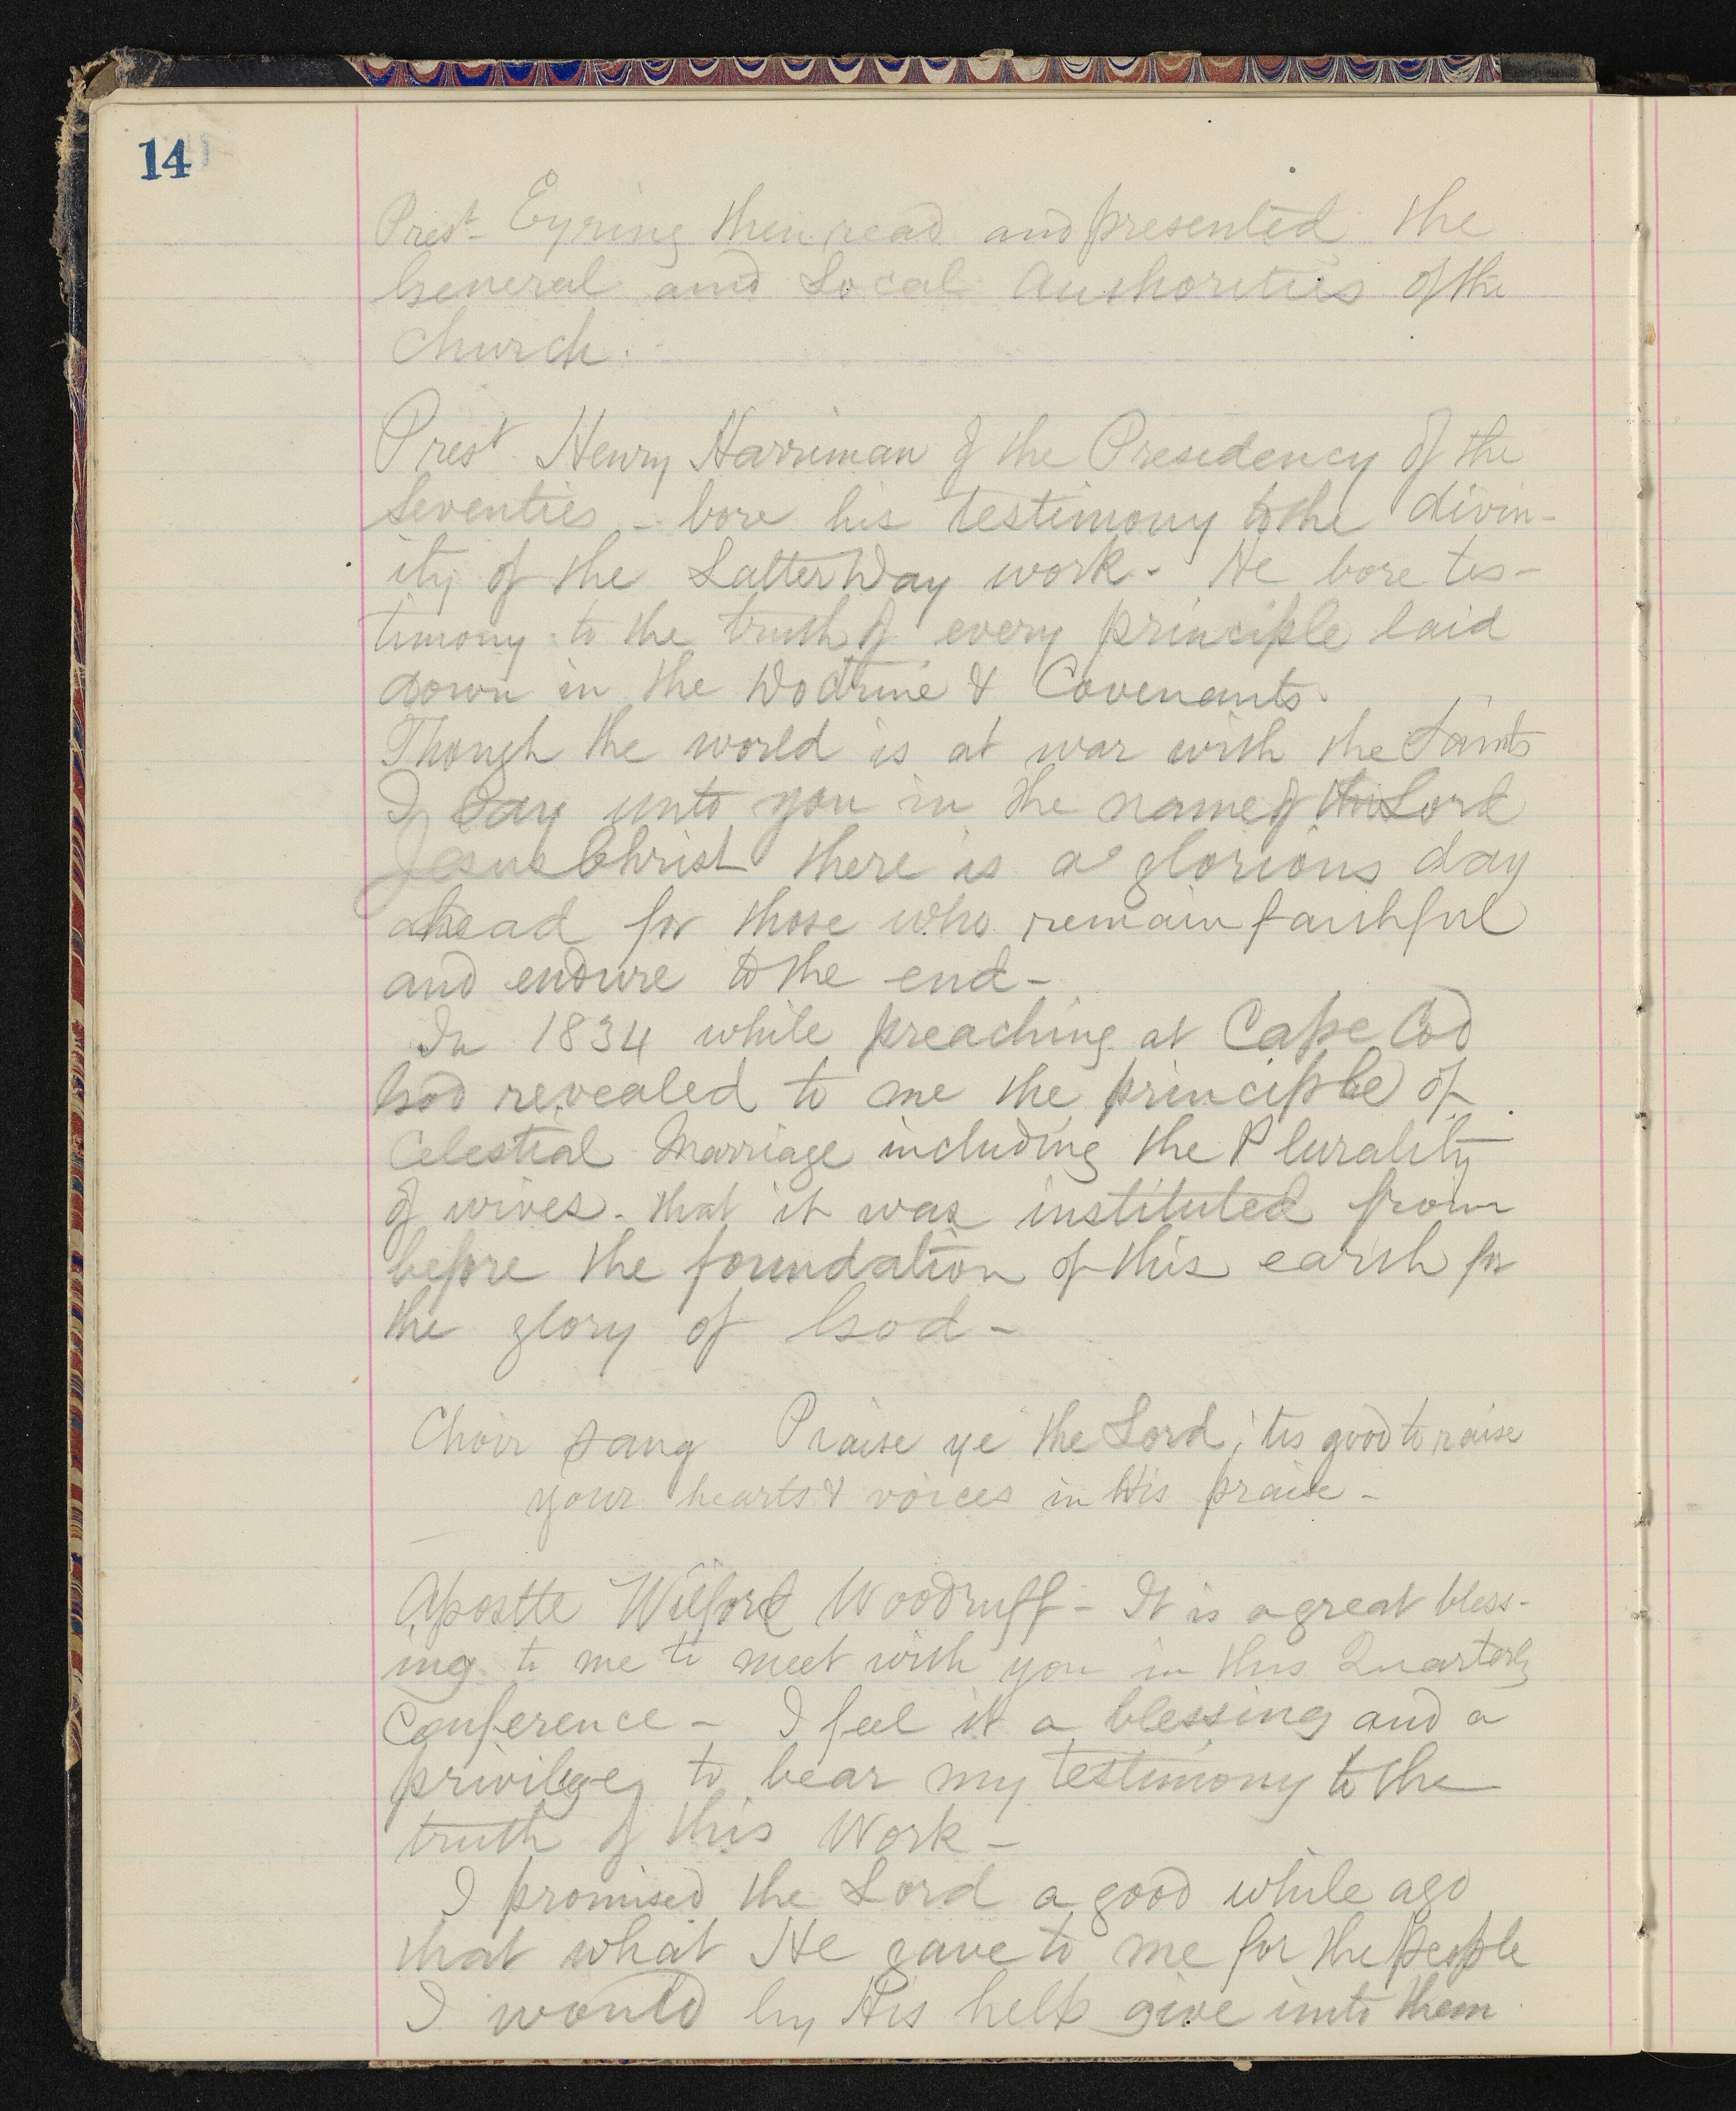 14
Prest Eyring then read and presented the
General and Local Authorities of the
Church.
Prest Henry Harriman of the Presidency of the
Seventies - bore his testimony to the divin-
ity of the Latter Day work - He bore tes-
timony to the truth of every principle laid
down in the Doctrine & Covenants.
Though the world is at war with the Saints
I say unto you in the name of the Lord
Jesus Christ there is a glorious day
ahead for those who remain faithful
and endure to the end -
In 1834 while preaching at Cape Cod
God revealed to me the principle of
Celestial Marriage including the Plurality
of wives - that it was instituted from
before the foundation of this earth for
the glory of God -
Choir sang Praise ye the Lord; 'tis good to raise
your hearts & voices in His praise -
Apostle Wilford Woodruff - It is a great bless-
ing to me to meet with you in this Quarterly
Conference - I feel it a blessing and a
privilege to bear my testimony to the
truth of this Work -
I promised the Lord a good while ago
that what He gave to me for the people
I would by His help give unto them